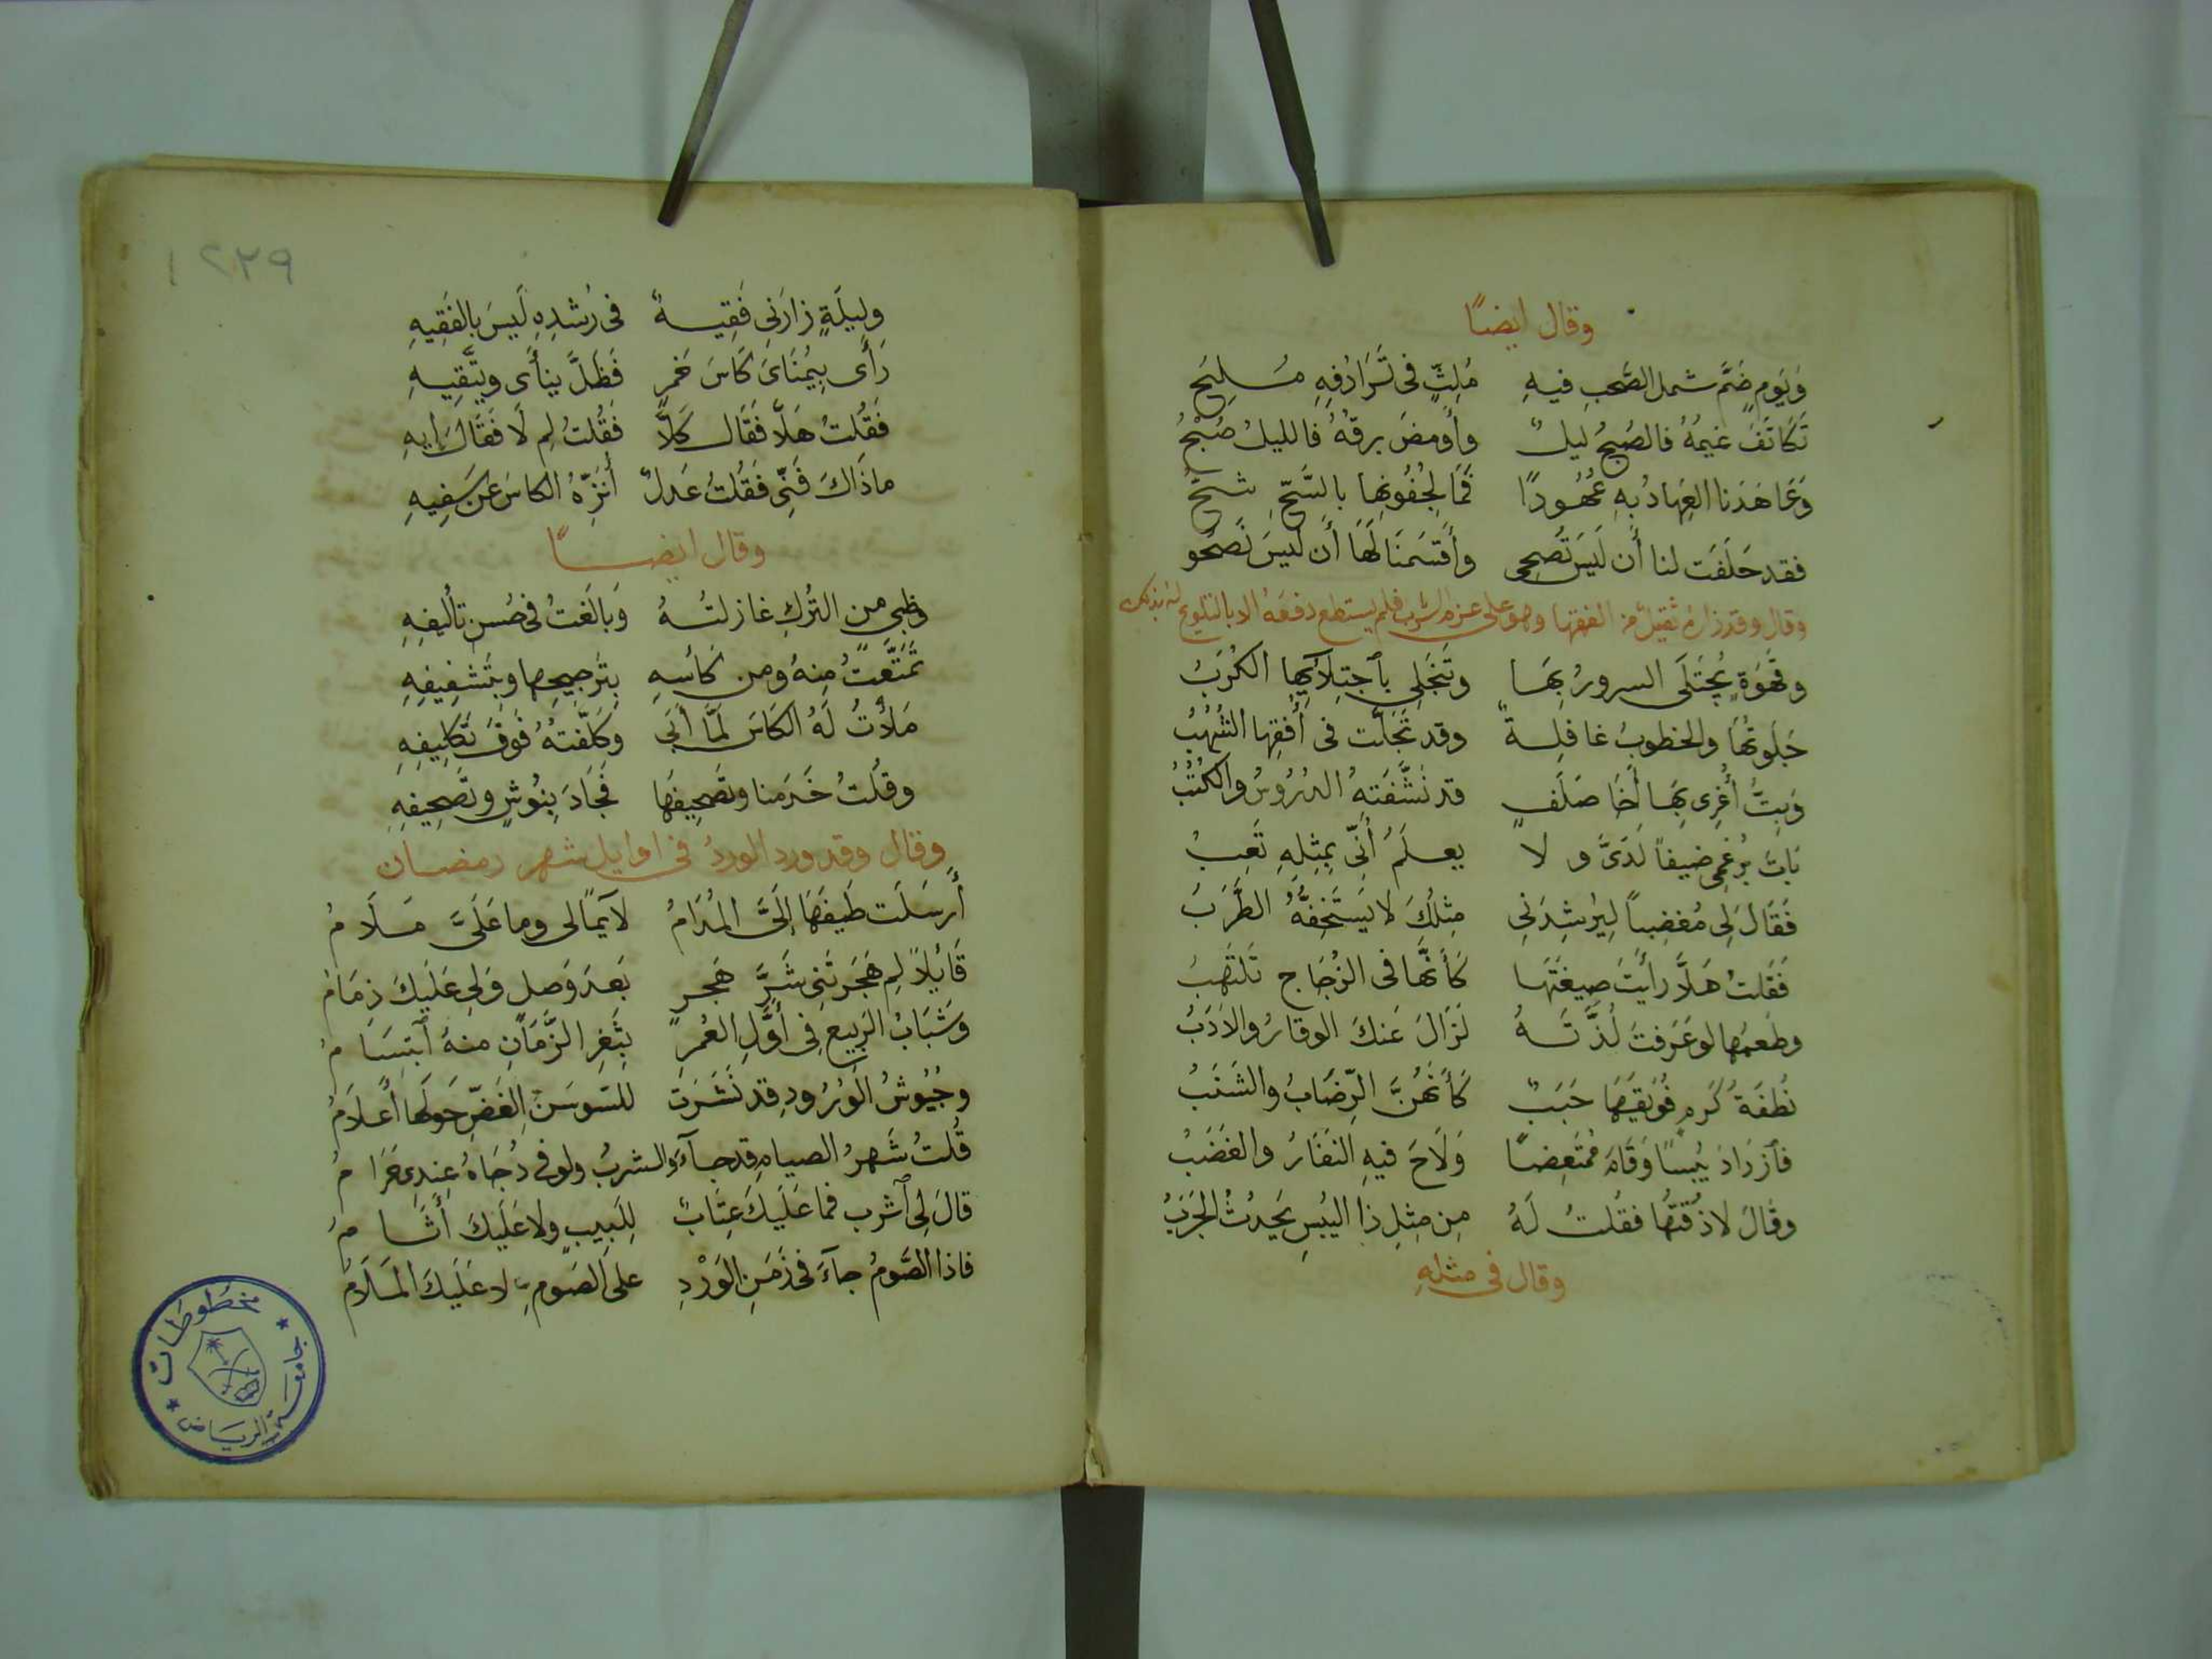 وقال ايضًا
وَيَومٍ ضَمَّ شملَ الصَّحبِ فيهِ مُلِثٍّ في تَرَادُفِهِ مُسلِحَ
تَكَاثَفَ غَيمُهُ فالصُبحُ ليلٌ وأَومضَ برقُهُ فالليلُ صُبْحُ
وَعَاهَدَنا العِهادُ بهِ عُهُودًا فَمَا لِجُفُونِها بالسَّحِّ شحُّ
فقد حَلَفَت لنا أَن لَيسَ تُصحِى وأَقسَمنَا لَهَا أَن لَيسَ نَصحُو
وقال وقد زاره ثقيل من الفقها وهو على عزم الشرب فلم يستطع دفعه الا بالتلويح له بذلك
وقَهْوَةٍ يُجتَلَى السرورُ بِهَا وتَنجَلِي بٱجتِلَائِهِا الكُرَبُ
جَلَوتُهَا والخطوبُ غافِلةٌ وقد تَجَلَّت في أُفقِها الشُهُبُ
وَبِتُّ أُغرِى بِهَا أَخَا صَلَفٍ قد نَشَّفَتهُ الدُرُوسُ والكُتُبُ
بَاتَ بُرغمِى ضيفاً لَدَىَّ ولا يعلَمُ أَنِّى بِمِثلِهِ تَعِبُ
فَقَالَ لِى مُغضِباً لِيُرشِدَنِى مِثلُكَ لا يَستَخِفُّهُ الطَرَبُ
فَقُلتُ هَلَّا رأَيتَ صِبغَتَهَا كَأَنَّها في الزُجَاجِ تَلتَهِبُ
وطَعمَها لو عَرَفتَ لَذَّتَهُ لَزَالَ عَنكَ الوقارُ والأَدَبُ
نُطفَةُ كَرمٍ فُوَيقَهَا حَبَبٌ كَأَنَّهُنَّ الرُضَابُ والشَنَبُ
فٱزدَادَ يُبسًا وَقَامَ مُمتَعِضًا وَلَاحَ فيهِ النَفَارُ والغَضَبُ
وقالَ لا ذُقتُها فقُلتُ لَهُ مِن مِثلِ ذا اليُبسِ يَحدُثُ الجَرَبُ
وقال في مثلهِ
١٢٣٩
وليلَةٍ زارَنِى فَقِيهٌ في رُشدِهِ لَيسَ بالفَقِيهِ
رَأَى بِيُمنَاىَ كَاسَ خَمرٍ فَظَلَّ ينأَى ويتَّقِيهِ
فَقُلتُ هَلَّا فَقَالَ كَلَّا فَقُلتُ لِم لَا فَقَالَ إِيهِ
ماذَاكَ فَنِّى فَقُلتُ عَدلٌ أُنَزِّهُ الكاسَ عن سَفِيهِ
وقال ايضًا
وظبي من التُركِ غازلتُهُ وَبالَغتُ في حُسنِ تأليفِهِ
تَمَتَّعتُ مِنهُ ومن كَأسِهِ بِتَرجيحِها وبِتَشفِيفِهِ
مَلأتُ لَهُ الكَاسَ لَمَّا أَبَى وكَلَّفتهُ فَوقَ تَكلِيفِهِ
وقُلتُ خَدَمنا وتَصحِيفَهَا فَجَادَ بِنُوشٍ وتَصحِيفِهِ
وقال وقد ورد الورد في اوايل شهر رمضان
أَرسَلَت طَيفَهَا إِلَىَّ المُدَامُ لايمًا لى وما عَلَىَّ مَلَامُ
قَايِلاً لِم هَجَرتَنِى شَرَّ هَجرٍ بَعدَ وَصلٍ وَلِى عَلَيكَ ذِمَامُ
وَشَبَابُ الرَبِيعِ فِي أَوَّلِ العُمرِ بِثَغرِ الزَّمَانِ منهُ ٱبتِسَامُ
وجُيُوشُ الوُرُودِ قد نَشَرَت للسَوسَنِ الغَضِّ حَولَها أَعلَامُ
قُلتُ شَهرُ الصيامِ قد جآءَ والشربُ ولو في دُجَاهُ عِندِى حَرَامُ
قالَ لِى ٱشرب فما عَلَيكَ عِتَابٌ لِلَبِيبٍ ولا عَلَيكَ أَثَامُ
فاذا الصَّومُ جآءَ في زَمَنِ الوَرْدِ على الصَومِ لا عَلَيكَ المَلَامُ
مخطوطات
جامعة الرياض